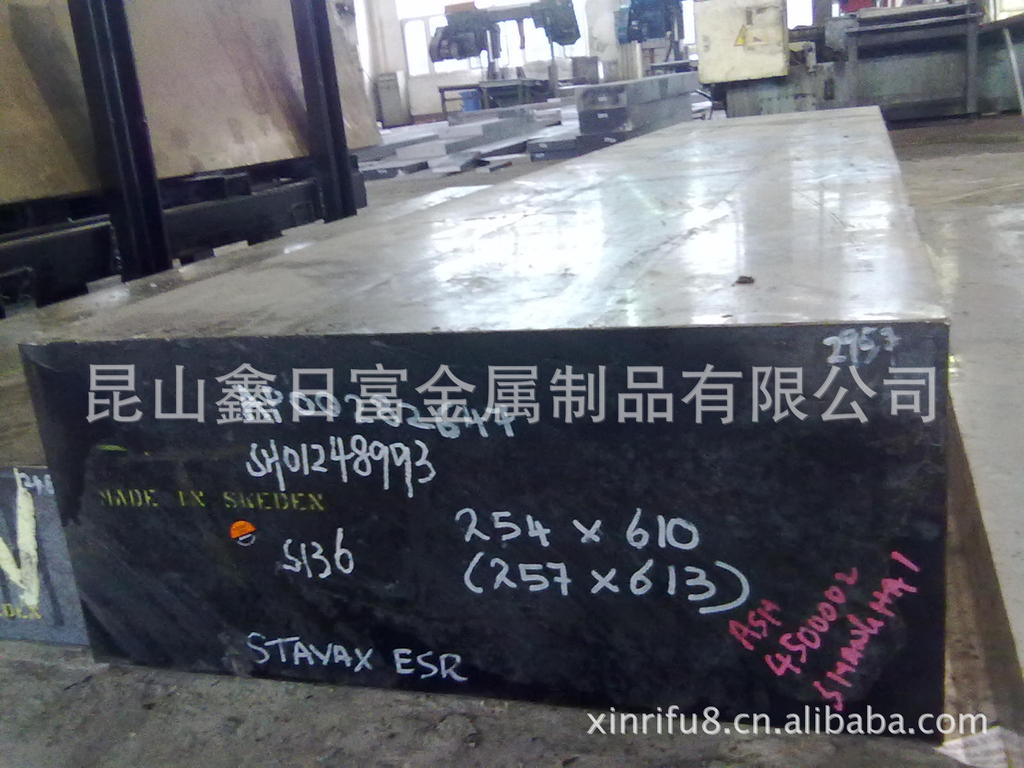 2957
昆山鑫日富金属制品有限公司
SH01248993
MADE IN SWEDEN
254 x 610
S136
(257 x 613)
ASM
4500002
SHANGHAI
STAVAX ESR
xinrifu8.cn.alibaba.com